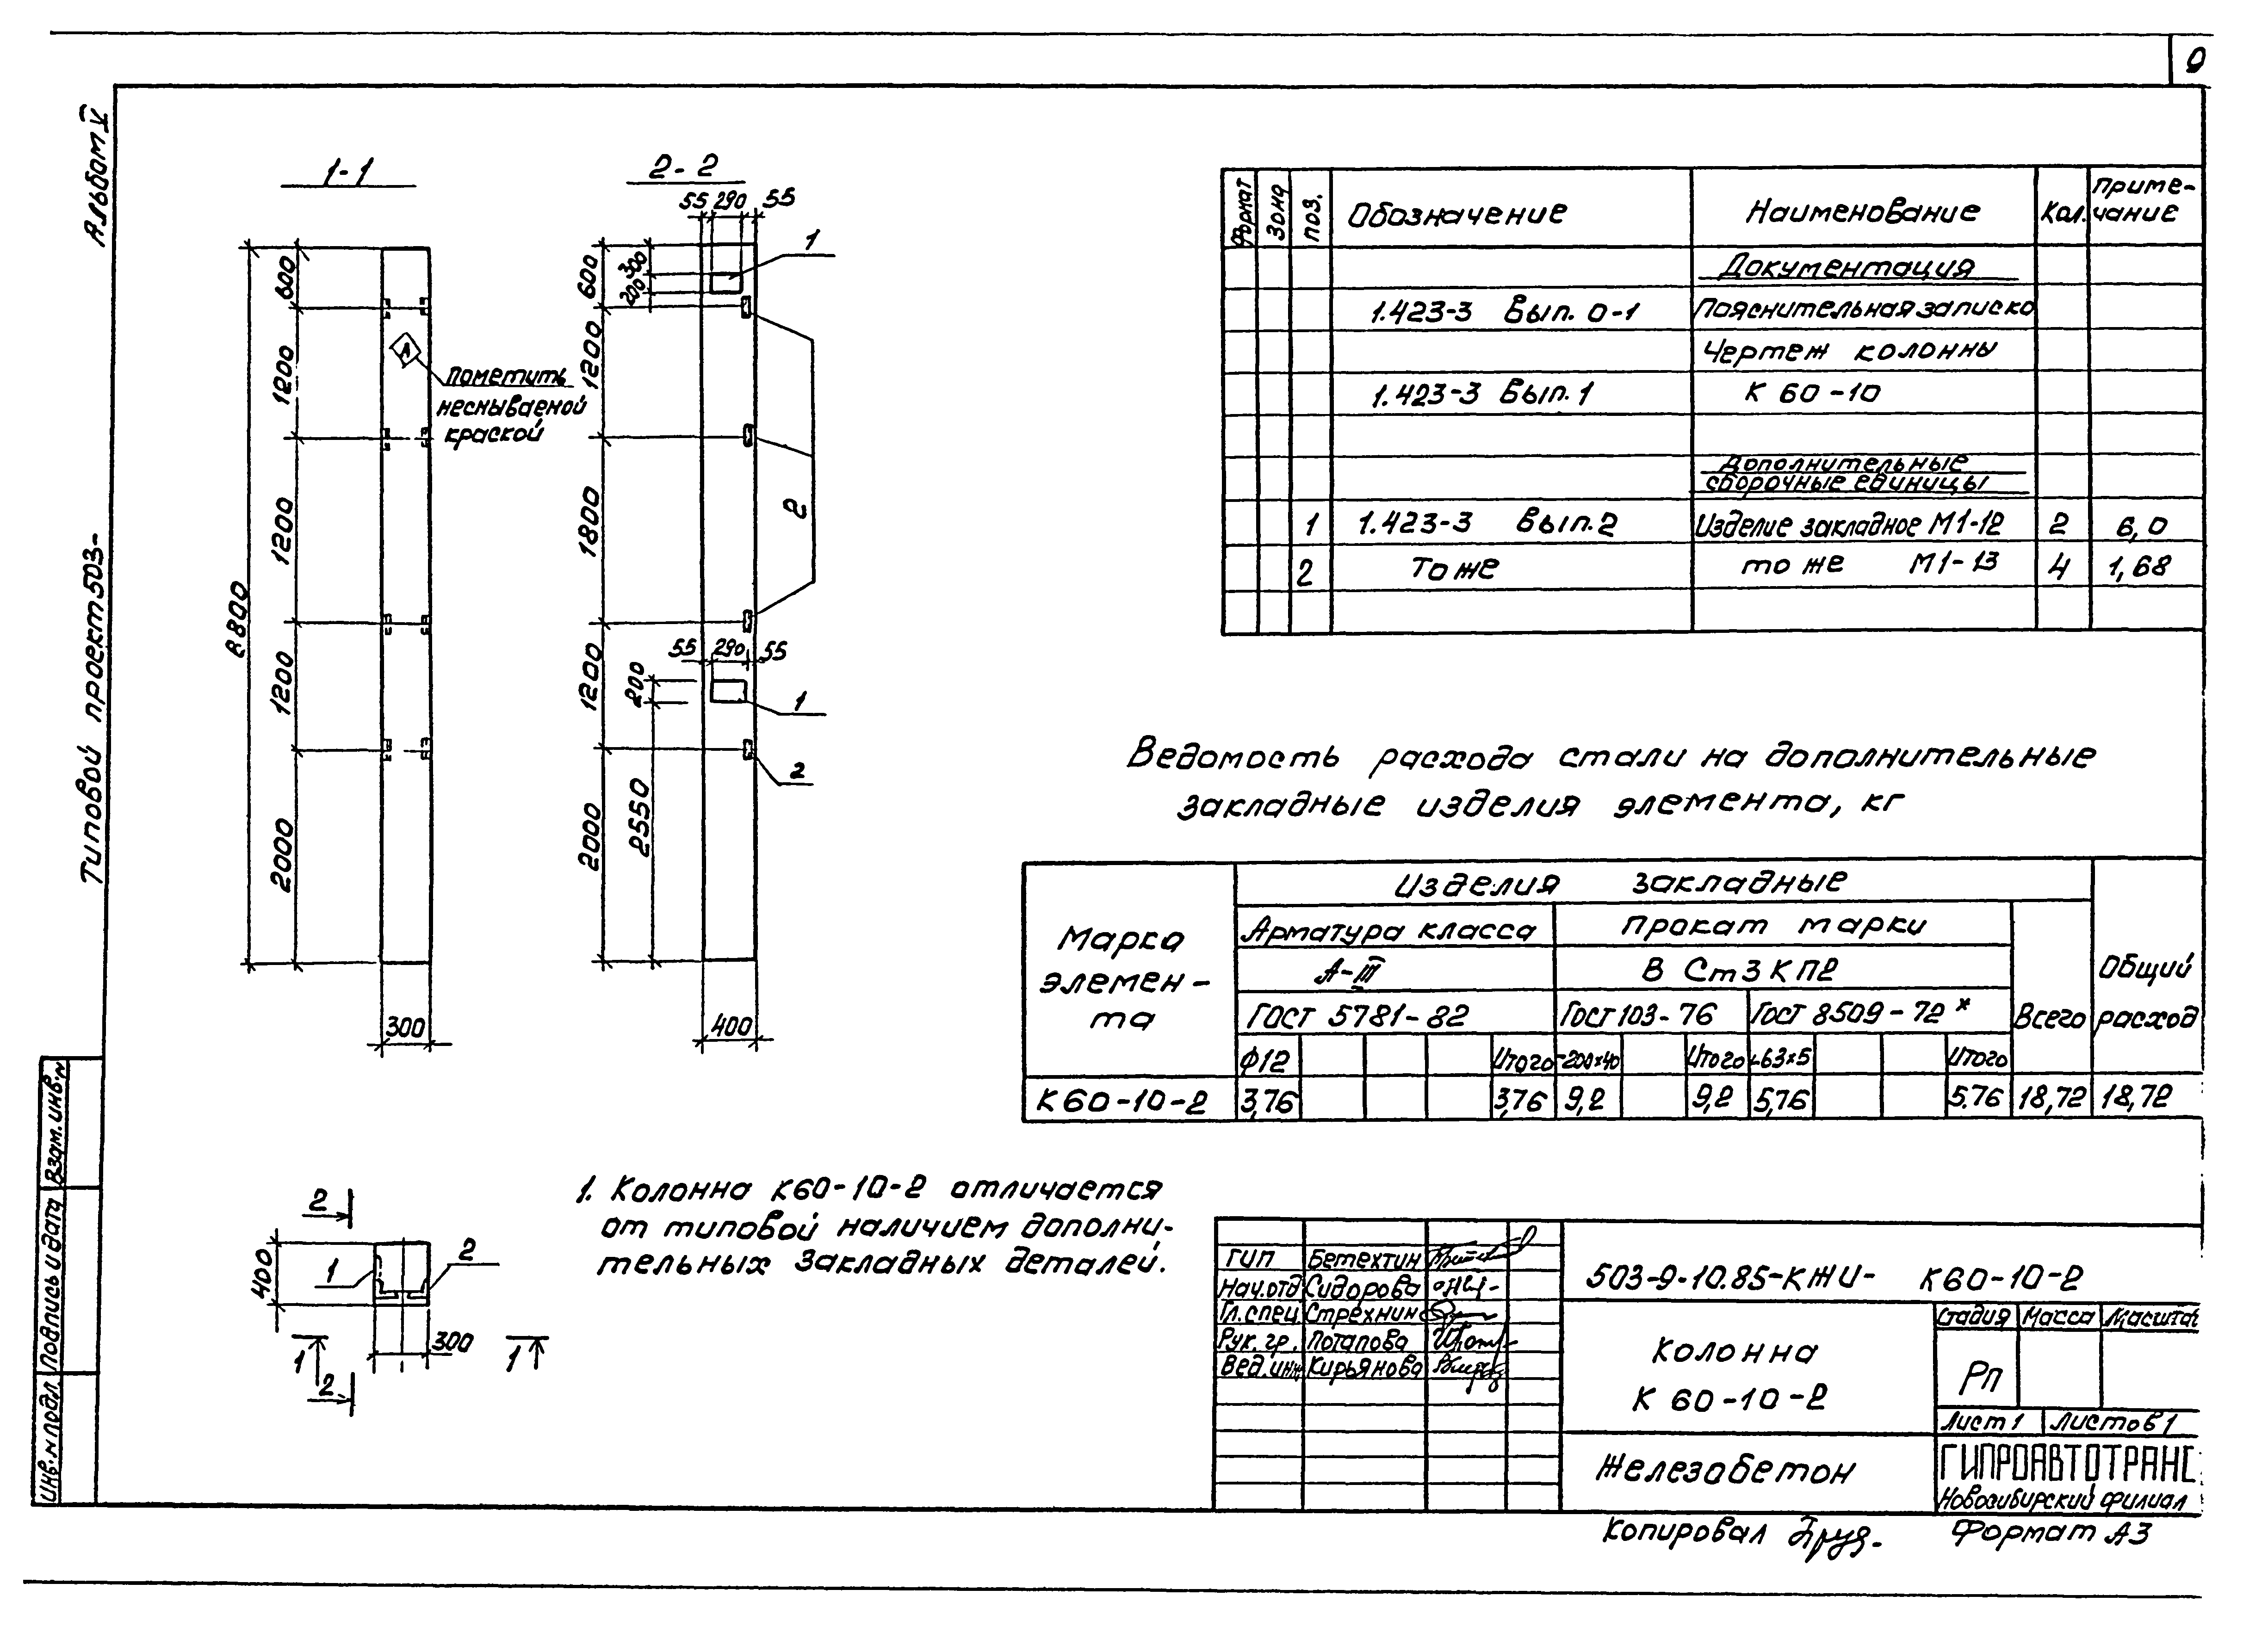 Альбом V
Типовой проект 503-
1-1
600
1200
1200
1200
2000
8800
300
А
Пометить
несмываемой
краской
2-2
55 290 55
600
300
200
1200
1800
1200
2000
55 290 55
200
2550
400
1
2
1
2
Формат Зона Поз. Обозначение Наименование Кол. Приме-
чание
Документация
1.423-3 Вып. 0-1 Пояснительная записка
Чертеж колонны
1.423-3 Вып. 1 К 60-10
Дополнительные
сборочные единицы
1 1.423-3 Вып. 2 Изделие закладное М1-12 2 6,0
2 То же то же М1-13 4 1,68
Ведомость расхода стали на дополнительные
закладные изделия элемента, кг
Марка
элемен-
та
Изделия закладные
Арматура класса Прокат марки
А-III В Ст3 КП2
ГОСТ 5781-82 ГОСТ 103-76 ГОСТ 8509-72*
Всего
Общий
расход
ф12 Итого -200×40 Итого ∟63×5 Итого
К60-10-2 3,76 3,76 9,2 9,2 5,76 5.76 18,72 18,72
1. Колонна К60-10-2 отличается
от типовой наличием дополни-
тельных закладных деталей.
2
400
1
2
300
1
1
2
Взам. инв. N
Подпись и дата
Инв. N подл.
ГИП Бетехтин
Нач.отд Сидорова
Гл.спец. Стрехнин
Рук. гр. Потапова
Вед.инж Кирьянова
503-9-10.85-КЖИ- К60-10-2
Колонна
К 60-10-2
Стадия Масса Масштаб
Рп
Лист 1 Листов 1
Железобетон
ГИПРОАВТОТРАНС
Новосибирский филиал
Копировал
Формат А3